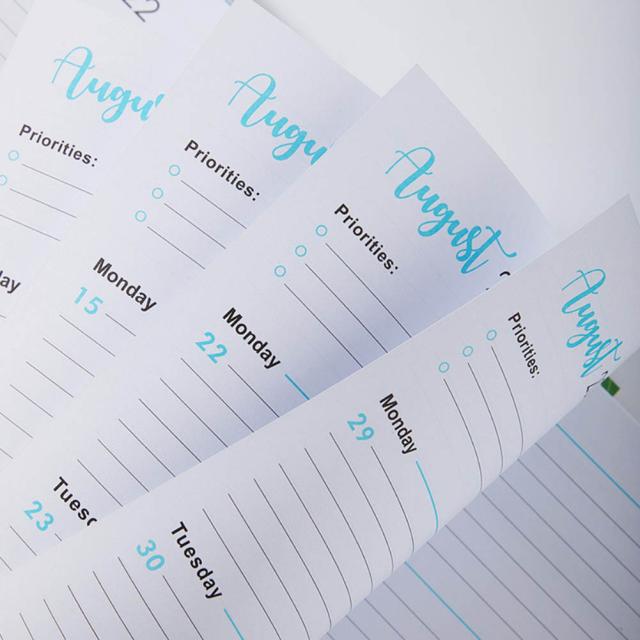 22
Augu
Priorities:
ay
Augu
Priorities:
Monday
15
August
Priorities:
Monday
22
Tues
23
August
Priorities:
Monday
29
Tuesday
30